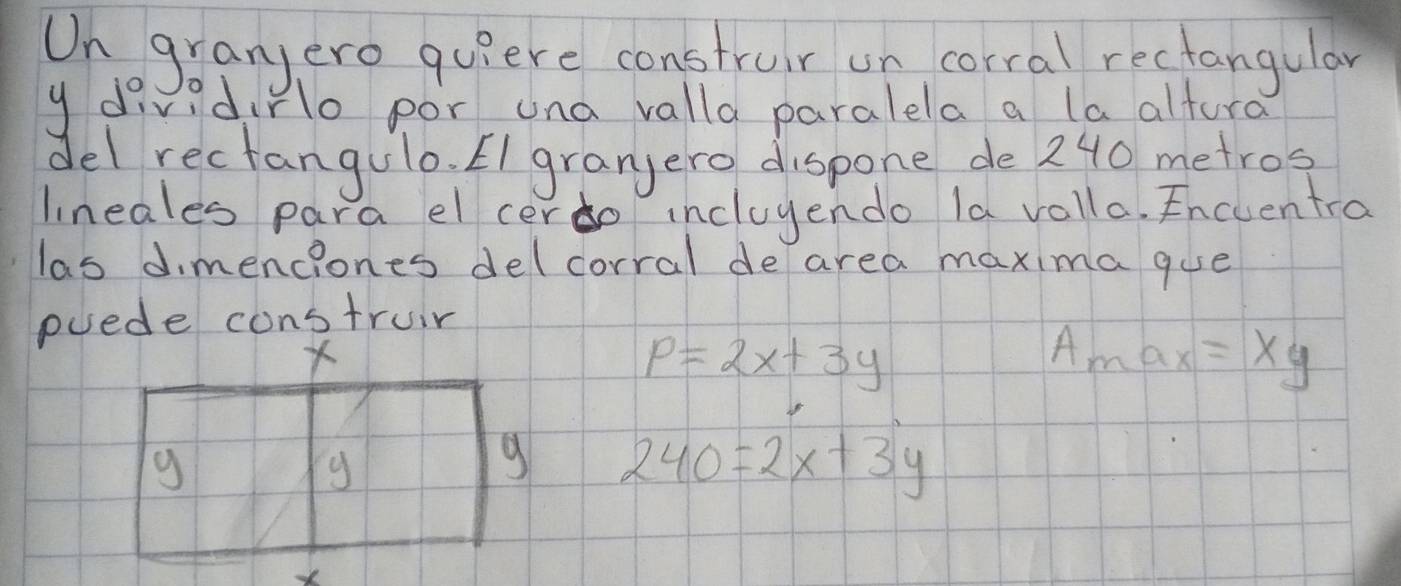 Un granjero quiere construir un corral rectangular
y dividirlo por una valla paralela a la altura
del rectangulo. El granjero dispone de 240 metros
lineales para el cerco incluyendo la valla. Encuentra
las dimenciones del corral de area maxima que
puede construir
x
P=2x+3y
Amax=xy
y
y
y
240=2x+3y
x